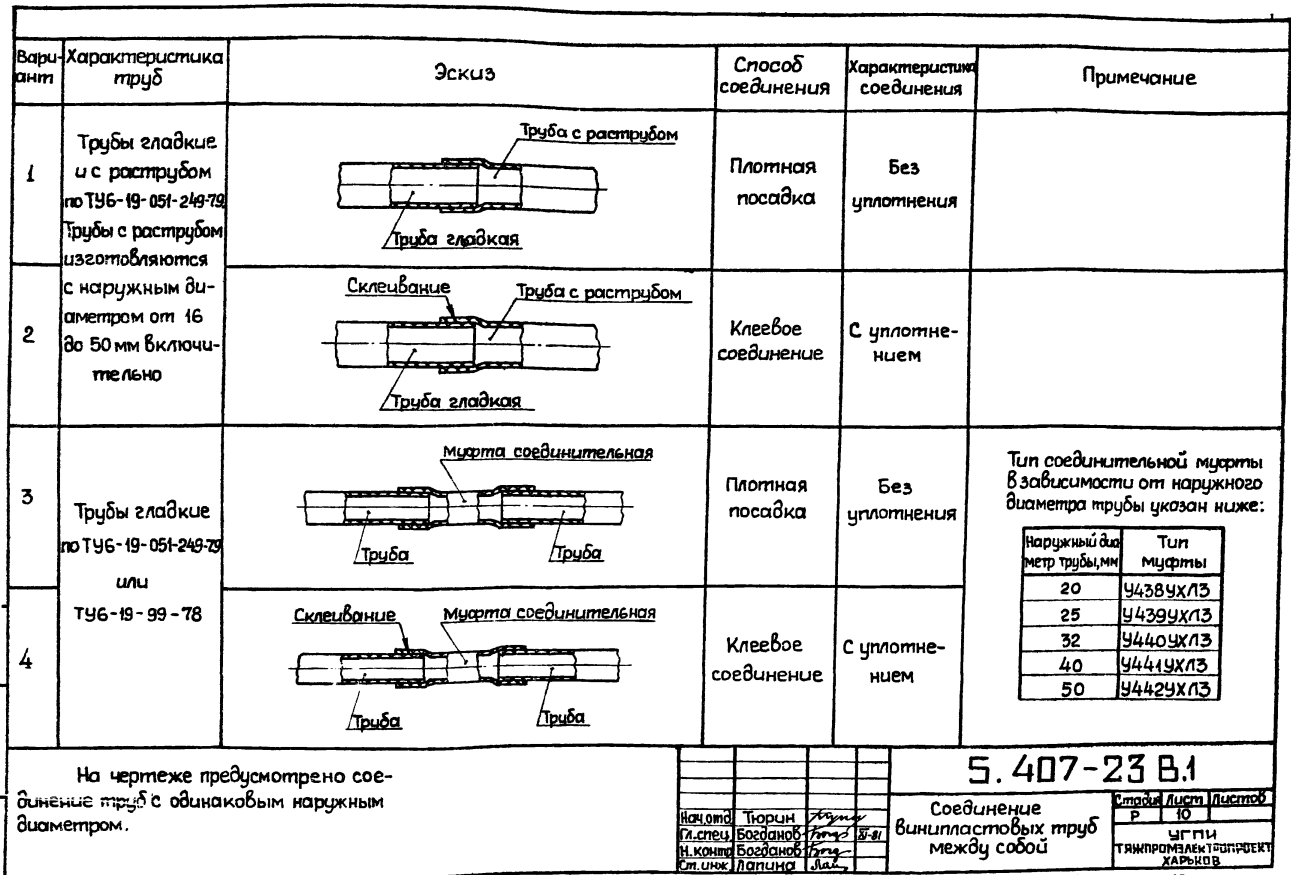 Вари-
ант
Характеристика
труб
Эскиз
Способ
соединения
Характеристика
соединения
Примечание
1
Трубы гладкие
и с раструбом
по ТУ6-19-051-249-79
Трубы с раструбом
изготовляются
с наружным ди-
аметром от 16
до 50 мм включи-
тельно
Труба с раструбом
Труба гладкая
Плотная
посадка
Без
уплотнения
2
Склеивание
Труба с раструбом
Труба гладкая
Клеевое
соединение
С уплотне-
нием
3
Трубы гладкие
по ТУ6-19-051-249-79
или
ТУ6-19-99-78
Муфта соединительная
Труба
Труба
Плотная
посадка
Без
уплотнения
Тип соединительной муфты
в зависимости от наружного
диаметра трубы указан ниже:
Наружный диа
метр трубы,мм
Тип
муфты
20 У438УХЛ3
25 У439УХЛ3
32 У440УХЛ3
40 У441УХЛ3
50 У442УХЛ3
4
Склеивание
Муфта соединительная
Труба
Труба
Клеевое
соединение
С уплотне-
нием
На чертеже предусмотрено сое-
динение труб с одинаковым наружным
диаметром.
5.407-23 В.1
Нач.отд Тюрин
Гл.спец. Богданов XI-81
Н.контр Богданов
Ст.инж. Лапина
Соединение
винипластовых труб
между собой
Стадия Лист Листов
Р 10
УГПИ
ТЯЖПРОМЭЛЕКТРОПРОЕКТ
ХАРЬКОВ